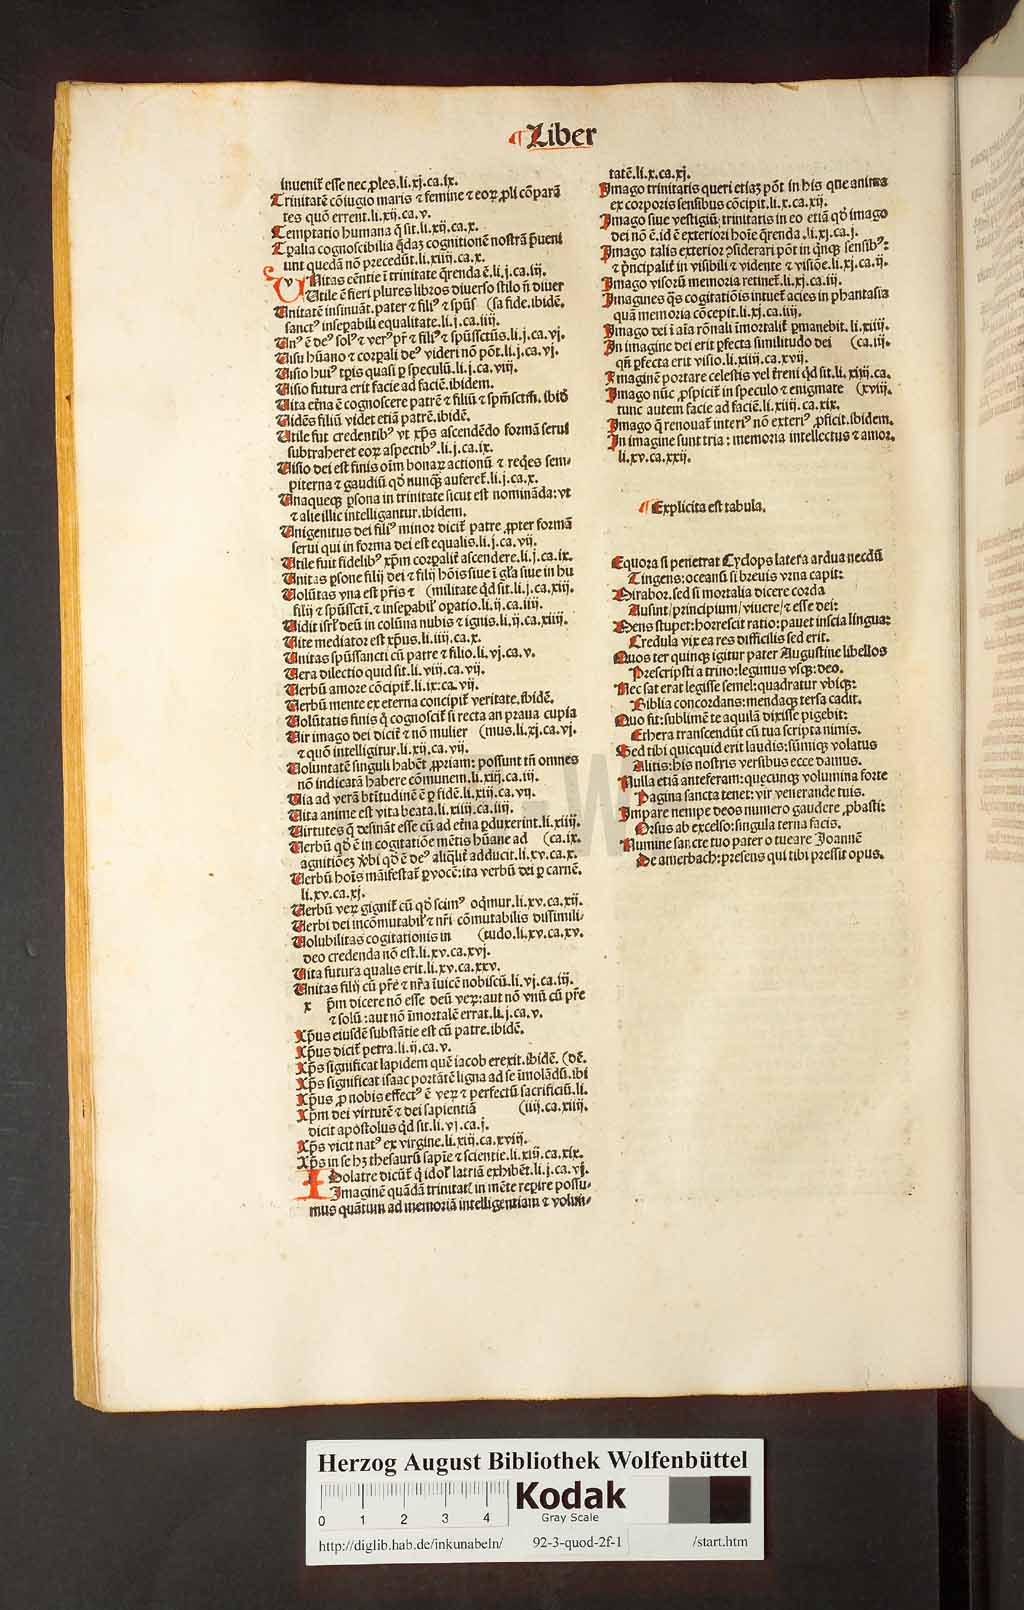 ¶Liber
inuenit̃ esse nec ꝓles.li.xj.ca.ix.
Trinitatẽ cõiugio maris ⁊ femine ⁊ eoꝝ ꝓli cõparã
tes quõ errent.li.xij.ca.v.
Temptatio humana q̃ sit.li.xij.ca.x.
Tꝑalia cognoscibilia q̃dã cognitionẽ nostrã p̃ueni
unt quedã nõ precedũt.li.xiiij.ca.x.
Vnitas eẽntie ĩ trinitate q̃renda ẽ.li.j.ca.iij.
Vtile ẽ fieri plures libros diuerso stilo ñ diuer
Unitatẽ insinuãt.pater ⁊ filiꝰ ⁊ spũs (sa fide.ibidẽ.
sanctꝰ inseꝑabili equalitate.li.j.ca.iiij.
Unꝰ ẽ deꝰ solꝰ ⁊ verꝰ pr̃ ⁊ filiꝰ ⁊ spũssctũs.li.j.ca.vj.
Uisu hũano ⁊ corꝑali deꝰ videri nõ põt.li.j.ca.vj.
Uisio huiꝰ tꝑis quasi ꝑ speculũ.li.j.ca.viij.
Uisio futura erit facie ad faciẽ.ibidem.
Uita etn̄a ẽ cognoscere patrẽ ⁊ filiũ ⁊ spm̃sctm̃.ibid̃
Uidẽs filiũ videt etiã patrẽ.ibidẽ.
Utile fuit credentibꝰ vt xp̃s ascendẽdo formã serui
subtraheret eoꝝ aspectibꝰ.li.j.ca.ix.
Uisio dei est finis oĩm bonaꝝ actionũ ⁊ req̃es sem-
piterna ⁊ gaudiũ qd̃ nunqꝫ auferet̃.li.j.ca.x.
Unaqueqꝫ ꝑsona in trinitate sicut est nominãda:vt
⁊ alie illic intelligantur.ibidem.
Unigenitus dei filiꝰ minor dicit̃ patre ꝓpter formã
serui qui in forma dei est equalis.li.j.ca.vij.
Utile fuit fidelibꝰ xp̃m corꝑalit̃ ascendere.li.j.ca.ix.
Unitas ꝑsone filij dei ⁊ filij hoĩs siue ĩ gl̃a siue in hu
Uolũtas vna est pr̃is ⁊ (militate q̃d sit.li.j.ca.xiij.
filij ⁊ spũssctĩ.⁊ inseꝑabilꝭ oꝑatio.li.ij.ca.iiij.
Uidit isrl̃ deũ in colũna nubis ⁊ ignis.li.ij.ca.xiiij.
Uite mediator est xp̃us.li.iiij.ca.x.
Unitas spũssancti cũ patre ⁊ filio.li.vj.ca.v.
Uera dilectio quid sit.li.viij.ca.vij.
Uerbũ amore cõcipit̃.li.ix.ca.vij.
Uerbũ mente ex eterna concipit̃ veritate.ibidẽ.
Uolũtatis finis q̃ cognoscit̃ si recta an praua cupia
Uir imago dei dicit̃ ⁊ nõ mulier (mus.li.xj.ca.vj.
⁊ quõ intelligitur.li.xij.ca.vij.
Uoluntatẽ singuli habẽt ꝓpriam: possunt tñ omnes
nõ indicatã habere cõmunem.li.xiij.ca.iij.
Uia ad verã btĩtudinẽ ẽ ꝑ fidẽ.li.xiij.ca.vij.
Uita anime est vita beata.li.xiiij.ca.iiij.
Uirtutes q̃ desinãt esse cũ ad etn̄a ꝑduxerint.li.xiiij.
Uerbũ qd̃ ẽ in cogitatiõe mẽtis hũane ad (ca.ix.
agnitiõeꝫ v̓bi qd̃ ẽ deꝰ aliq̃lit̃ adducit.li.xv.ca.x.
Uerbũ hoĩs mãifestat̃ ꝑ vocẽ:ita verbũ dei ꝑ carnẽ.
li.xv.ca.xj.
Uerbũ veꝝ gignit̃ cũ qd̃ scimꝰ loq̃mur.li.xv.ca.xij.
Uerbi dei incõmutabilꝭ ⁊ nr̃i cõmutabilis dissimili-
Uolubilitas cogitationis in (tudo.li.xv.ca.xv.
deo credenda nõ est.li.xv.ca.xvj.
Uita futura qualis erit.li.xv.ca.xxv.
Unitas filij cũ pr̃e ⁊ nr̃a ĩuicẽ nobiscũ.li.vj.ca.iij.
x p̃m dicere nõ esse deũ veꝝ:aut nõ vnũ cũ pr̃e
⁊ solũ:aut nõ ĩmortalẽ errat.li.j.ca.v.
Xp̃us eiusdẽ substãtie est cũ patre.ibidẽ.
Xp̃us dicit̃ petra.li.ij.ca.v.
Xp̃s significat lapidem quẽ iacob erexit.ibidẽ. (dẽ.
Xp̃s significat isaac portãtẽ ligna ad se ĩmolãdũ.ibi
Xp̃us ꝓ nobis effectꝰ ẽ veꝝ ⁊ perfectũ sacrificiũ.li.
Xp̃m dei virtutẽ ⁊ dei sapientiã (iiij.ca.xiiij.
dicit apostolus q̃d sit.li.vj.ca.j.
Xp̃s vicit natꝰ ex virgine.li.xiij.ca.xviij.
Xp̃s in se hꝫ thesaurũ sapiẽ ⁊ scientie.li.xiij.ca.xix.
Idolatre dicũt̃ q̃ idolꝭ latriã exhibẽt.li.j.ca.vj.
Imaginẽ quãdã trinitatꝭ in mẽte reꝑire possu-
mus quãtum ad memoriã intelligentiam ⁊ volun-
tatẽ.li.x.ca.xj.
Imago trinitatis queri etiaꝫ põt in his que anima
ex corporis sensibus cõcipit.li.x.ca.xij.
Imago siue vestigiũ trinitatis in eo etiã qd̃ imago
dei nõ ẽ.id ẽ exteriori hoĩe q̃renda.li.xj.ca.j.
Imago talis exterior ꝯsiderari põt in q̃nqꝫ sensibꝰ:
⁊ p̃ncipalit̃ in visibili ⁊ vidente ⁊ visiõe.li.xj.ca.ij.
Imago visorũ memoria retinet̃.li.xj.ca.iij.
Imagines q̃s cogitatiõis intuet̃ acies in phantasia
quã memoria cõcepit.li.xj.ca.iiij.
Imago dei ĩ aĩa rõnali ĩmortalit̃ ꝑmanebit.li.xiiij.
In imagine dei erit ꝑfecta similitudo dei (ca.iij.
qñ ꝑfecta erit visio.li.xiiij.ca.xvij.
Imaginẽ portare celestis vel t̓reni q̃d sit.li.xiiij.ca.
Imago nũc ꝓspicit̃ in speculo ⁊ enigmate (xviij.
tunc autem facie ad faciẽ.li.xiiij.ca.xix.
Imago q̃ renouat̃ interiꝰ nõ exteriꝰ ꝓficit.ibidem.
In imagine sunt tria: memoria intellectus ⁊ amor.
li.xv.ca.xxij.
¶Explicita est tabula.
Equora si penetrat Cyclops latera ardua necdũ
Tingens:oceanũ si breuis vrna capit:
Mirabor.sed si mortalia dicere corda
Ausint/principium/viuere/⁊ esse dei:
Mens stupet:horrescit ratio:pauet inscia lingua:
Credula vix ea res difficilis sed erit.
Quos ter quinqꝫ igitur pater Augustine libellos
Prescripsti a trino:legimus vsqꝫ:deo.
Nec sat erat legisse semel:quadratur vbiqꝫ:
Biblia concordans:mendaqꝫ tersa cadit.
Quo fit:sublimẽ te aquilã dixisse pigebit:
Ethera transcendũt cũ tua scripta nimis.
Sed tibi quicquid erit laudis:sũmiqꝫ volatus
Alitis:his nostris versibus ecce damus.
Nulla etiã anteferam:quecunqꝫ volumina forte
Pagina sancta tenet:vir venerande tuis.
Impare nempe deos numero gaudere ꝓbasti:
Orsus ab excelso:singula terna facis.
Numine sac̃te tuo pater o tueare Joannẽ
De amerbach:presens qui tibi pressit opus.
Herzog August Bibliothek Wolfenbüttel
0 1 2 3 4
Kodak
Gray Scale
http://diglib.hab.de/inkunabeln/ 92-3-quod-2f-1 /start.htm